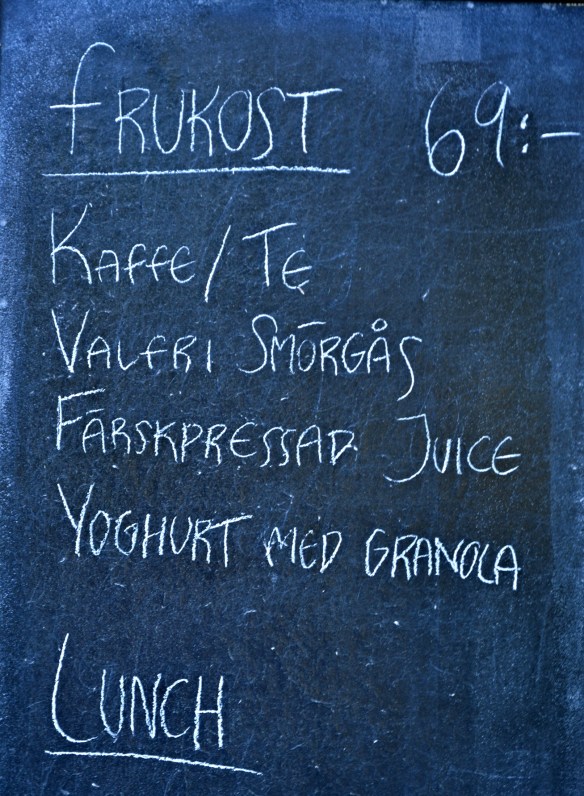 FRUKOST 69:-
KAFFE/TE
VALFRI SMÖRGÅS
FÄRSKPRESSAD JUICE
YOGHURT MED GRANOLA
LUNCH